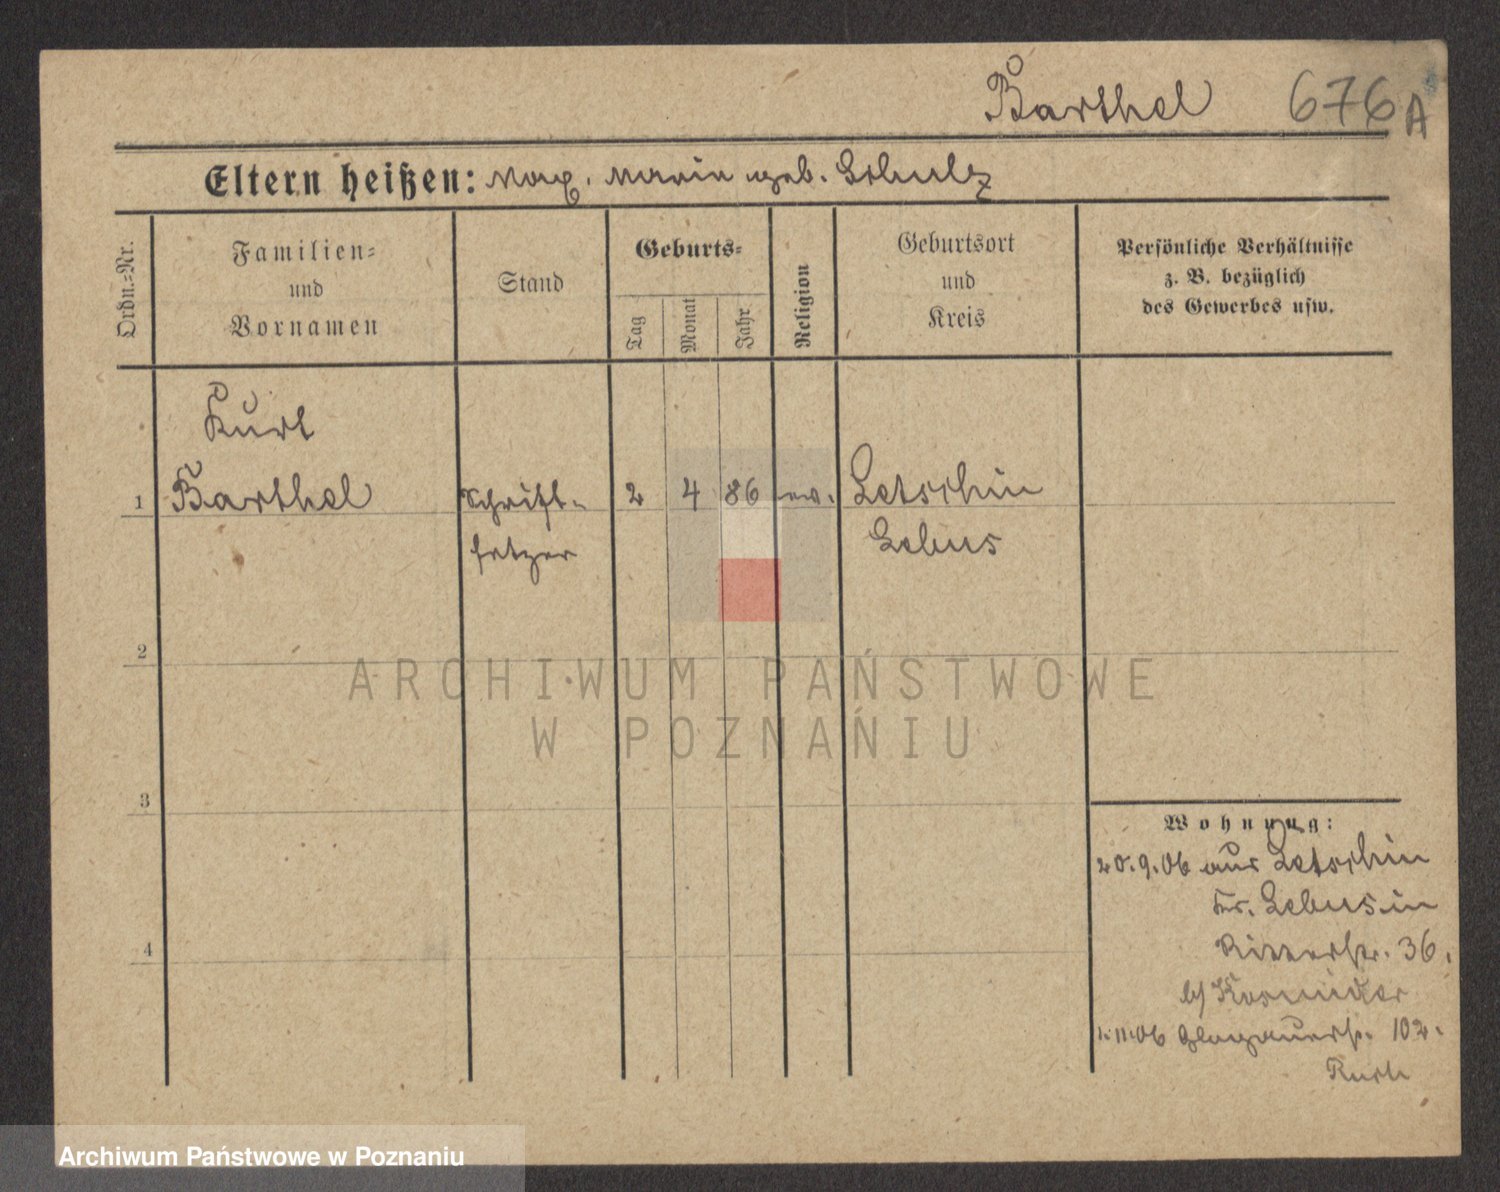 Barthel 676 A
Eltern heißen: Max. Marie geb. Schulz
Ordn.-Nr.
Familien-
und
Vornamen
Stand
Geburts-
Tag
Monat
Jahr
Religion
Geburtsort
und
Kreis
Persönliche Verhältnisse
z. B. bezüglich
des Gewerbes usw.
Kurt
1 Barthel Schrift- 2 4 86 ev. Letschin
setzer Lebus
2
ARCHIWUM PAŃSTWOWE
W POZNANIU
3
Wohnung:
20.9.06 aus Letschin
Kr. Lebus in
Ritterstr. 36.
b/
4
1.11.06 Glogauerstr. 102.
Archiwum Państwowe w Poznaniu